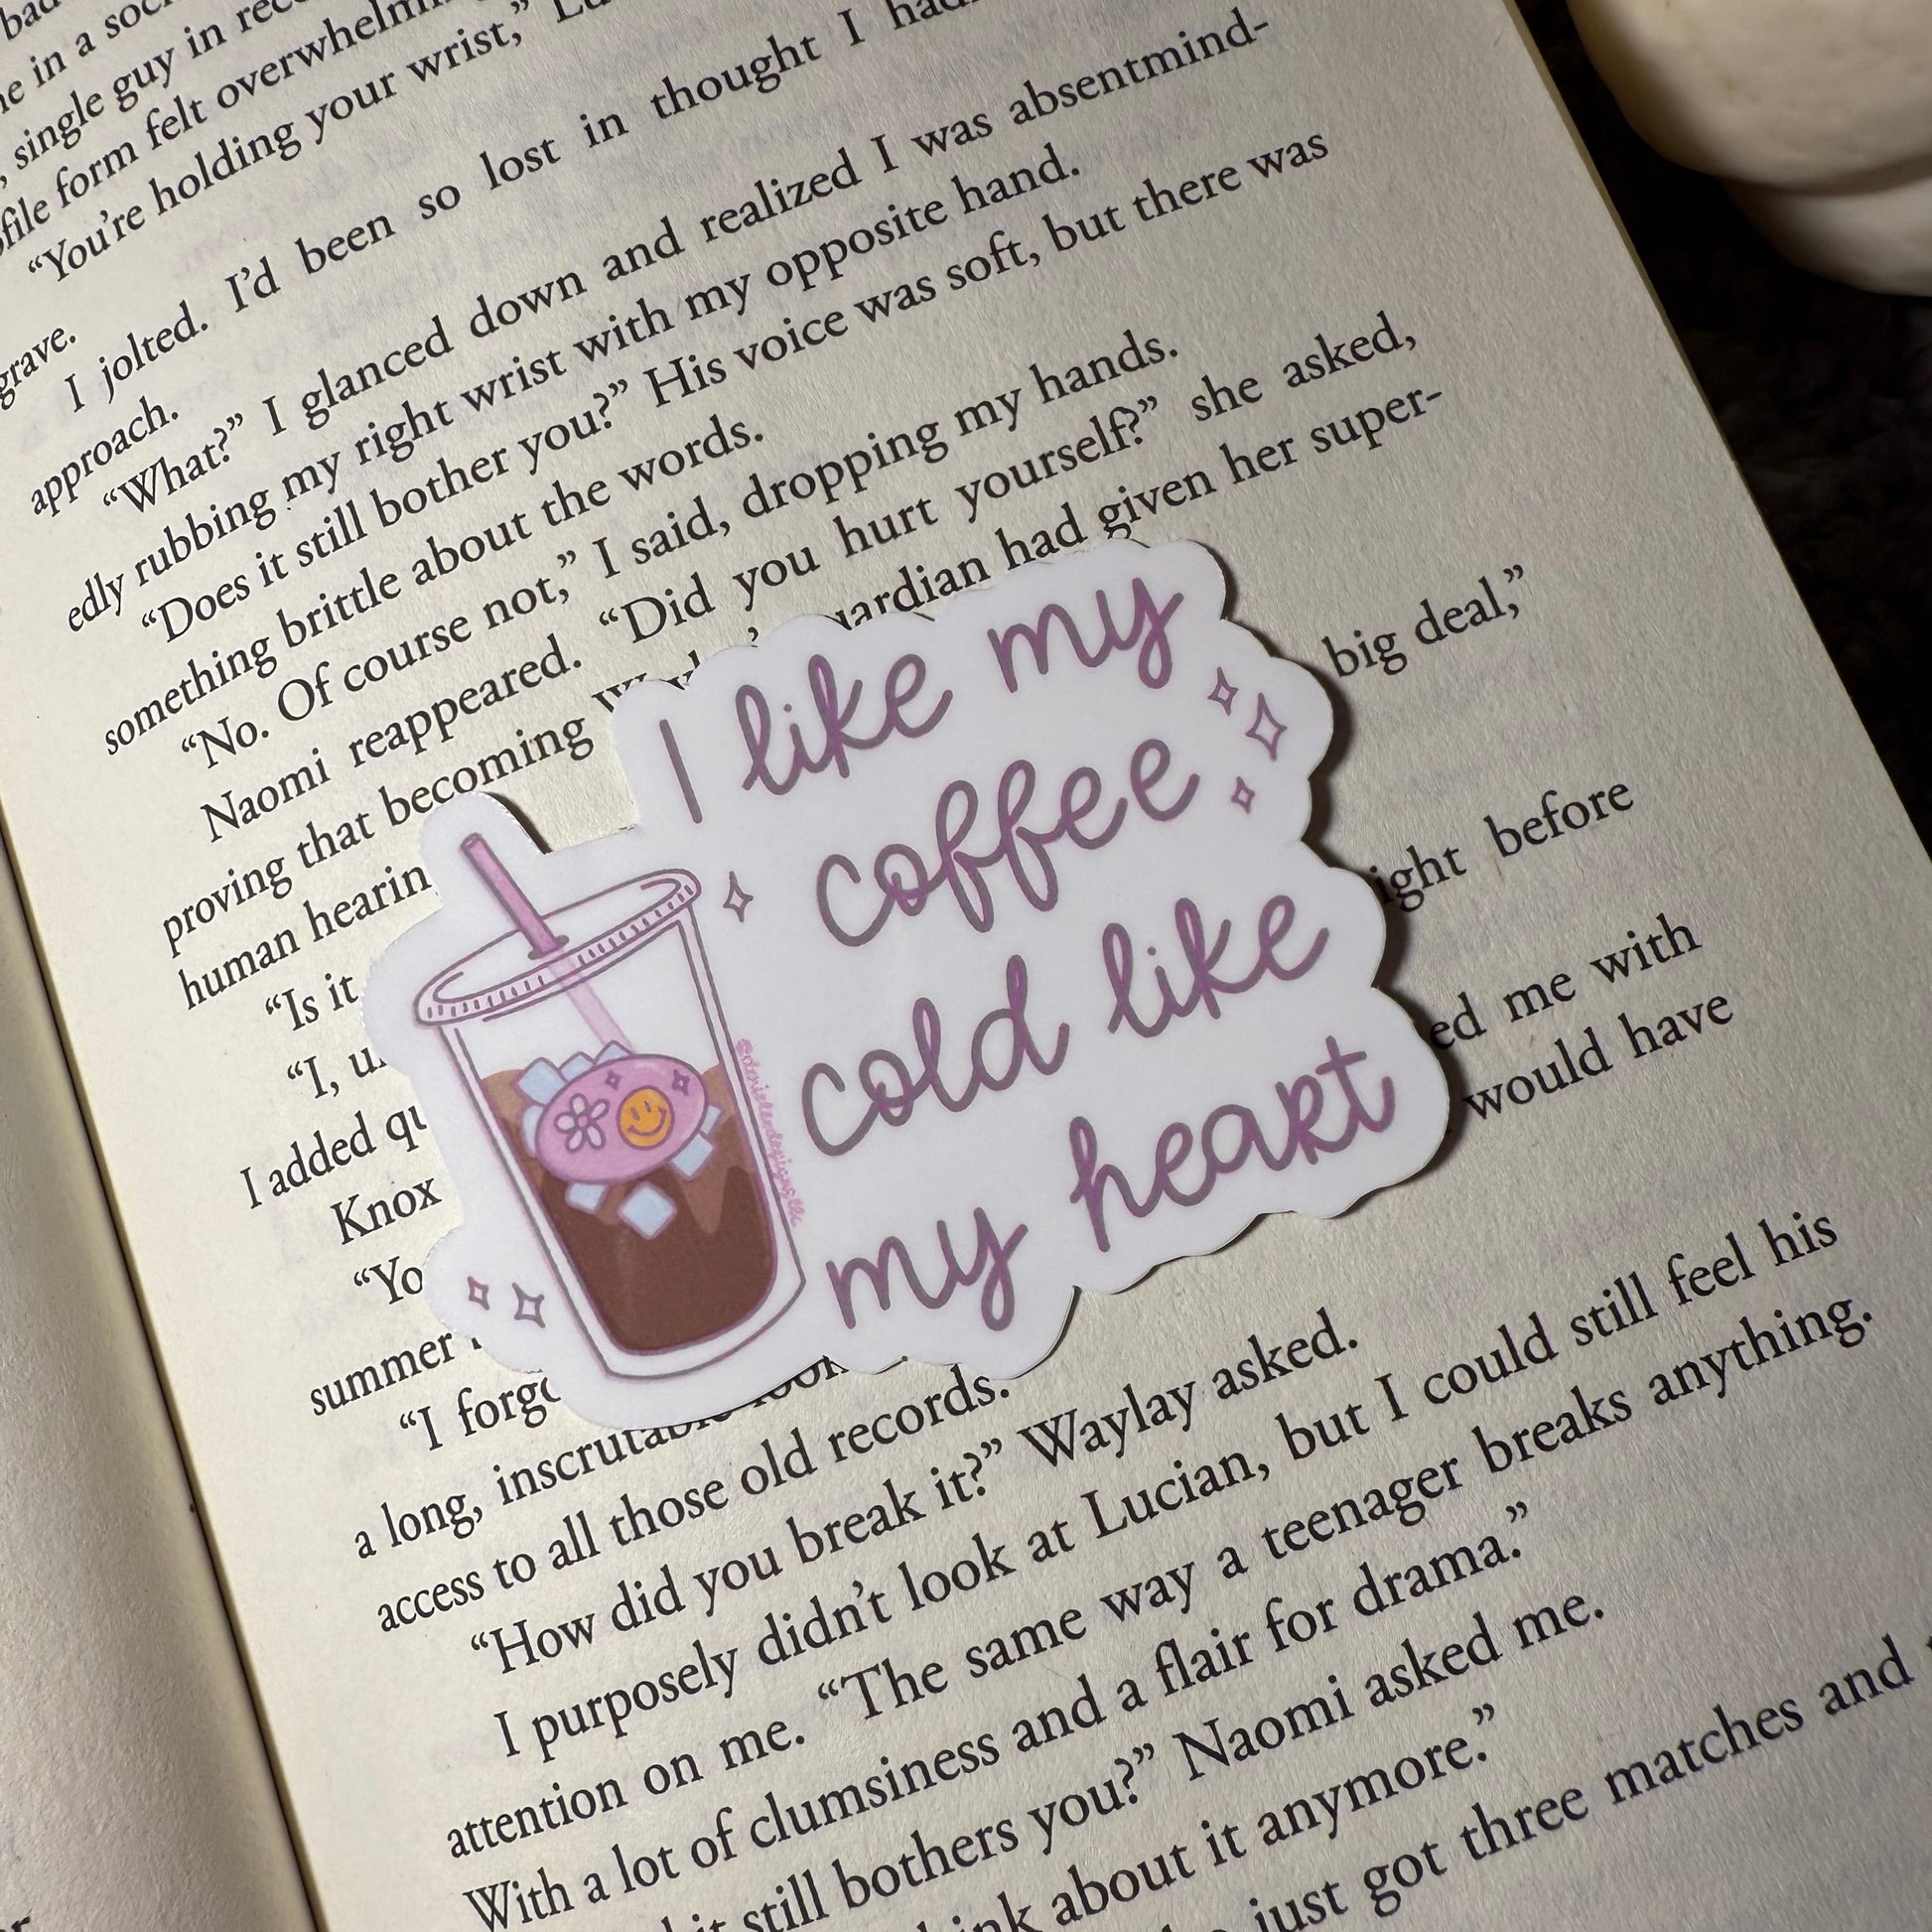 ne in a
single guy in
file form felt overwhelmin
"You're holding your wrist,"
grave.
I jolted. I'd been so lost in thought I had
approach.
"What?" I glanced down and realized I was absentmind-
edly rubbing my right wrist with my opposite hand.
"Does it still bother you?" His voice was soft, but there was
something brittle about the words.
"No. Of course not," I said, dropping my hands.
Naomi reappeared. "Did you hurt yourself?" she asked,
proving that becoming ardian had given her super-
human hearin
"Is it big deal,"
"I, u
I added qu ight before
Knox
"Yo ed me with
summer would have
"I forgo
a long, inscrutable look
access to all those old records.
"How did you break it?" Waylay asked.
I purposely didn't look at Lucian, but I could still feel his
attention on me. "The same way a teenager breaks anything.
With a lot of clumsiness and a flair for drama."
it still bothers you?" Naomi asked me.
about it anymore."
just got three matches and
I like my
coffee
cold like
my heart